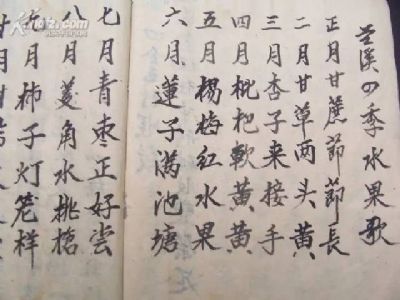 兰溪四季水果歌
正月甘蔗節節長
二月甘草两头黄
三月杏子来接手
四月枇杷軟黄黄
五月楊梅红水果
六月蓮子满池塘
七月青枣正好尝
八月菱角水桃搭
九月柿子灯笼样
十月甘